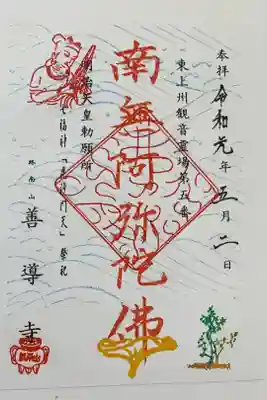 奉拝 令和元年五月二日
東上州観音霊場第五番
南無阿弥陀佛
明治天皇勅願所
七福神
善導寺